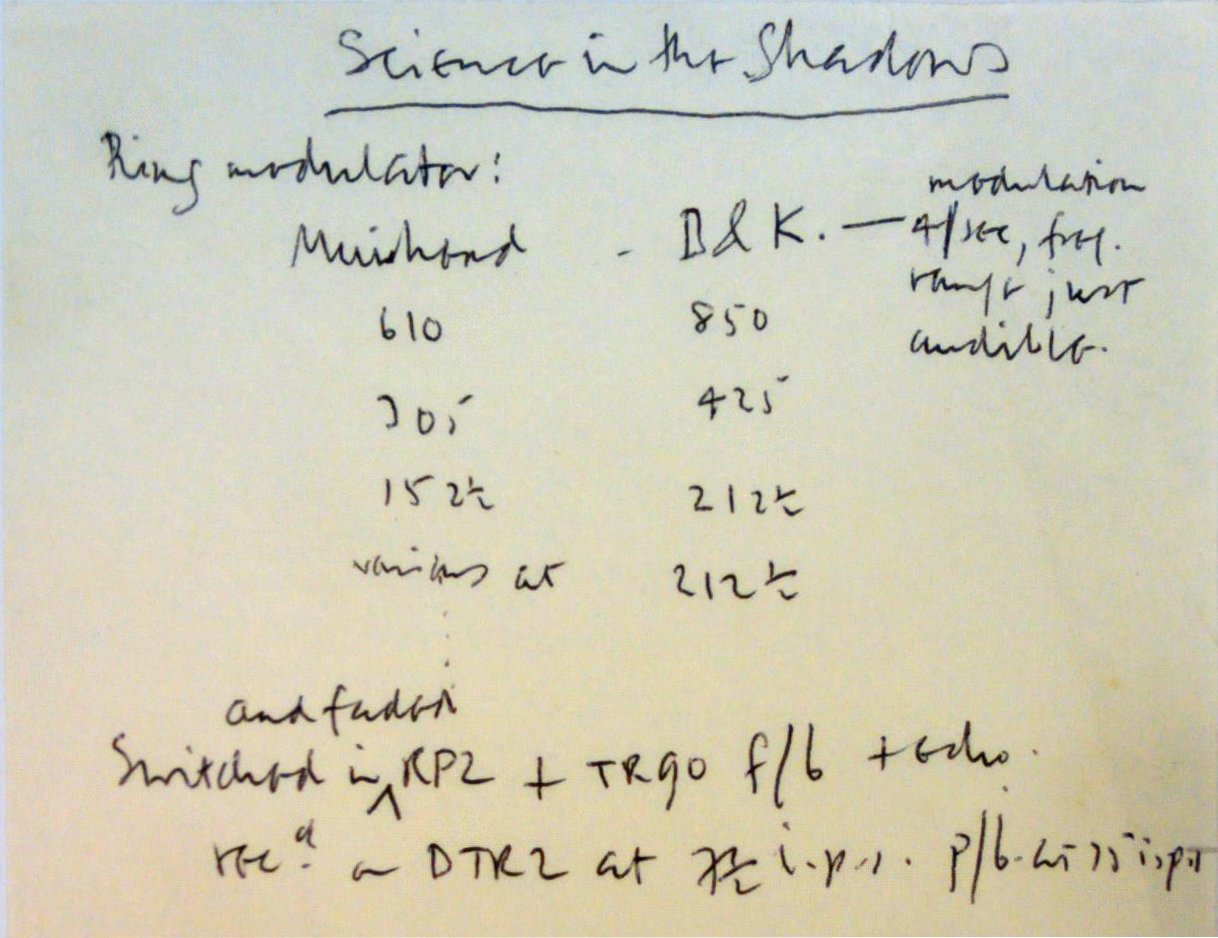 Science in the Shadows
Ring modulator:
Muirhead - B & K. — modulation
4/sec, freq.
range just
audible.
610 850
305 425
152½ 212½
various at 212½
and faded
Switched in ^ RP2 + TR90 f/b + echo.
recd. on DTR2 at 7½ i.p.s. p/b. at 15 i.p.s